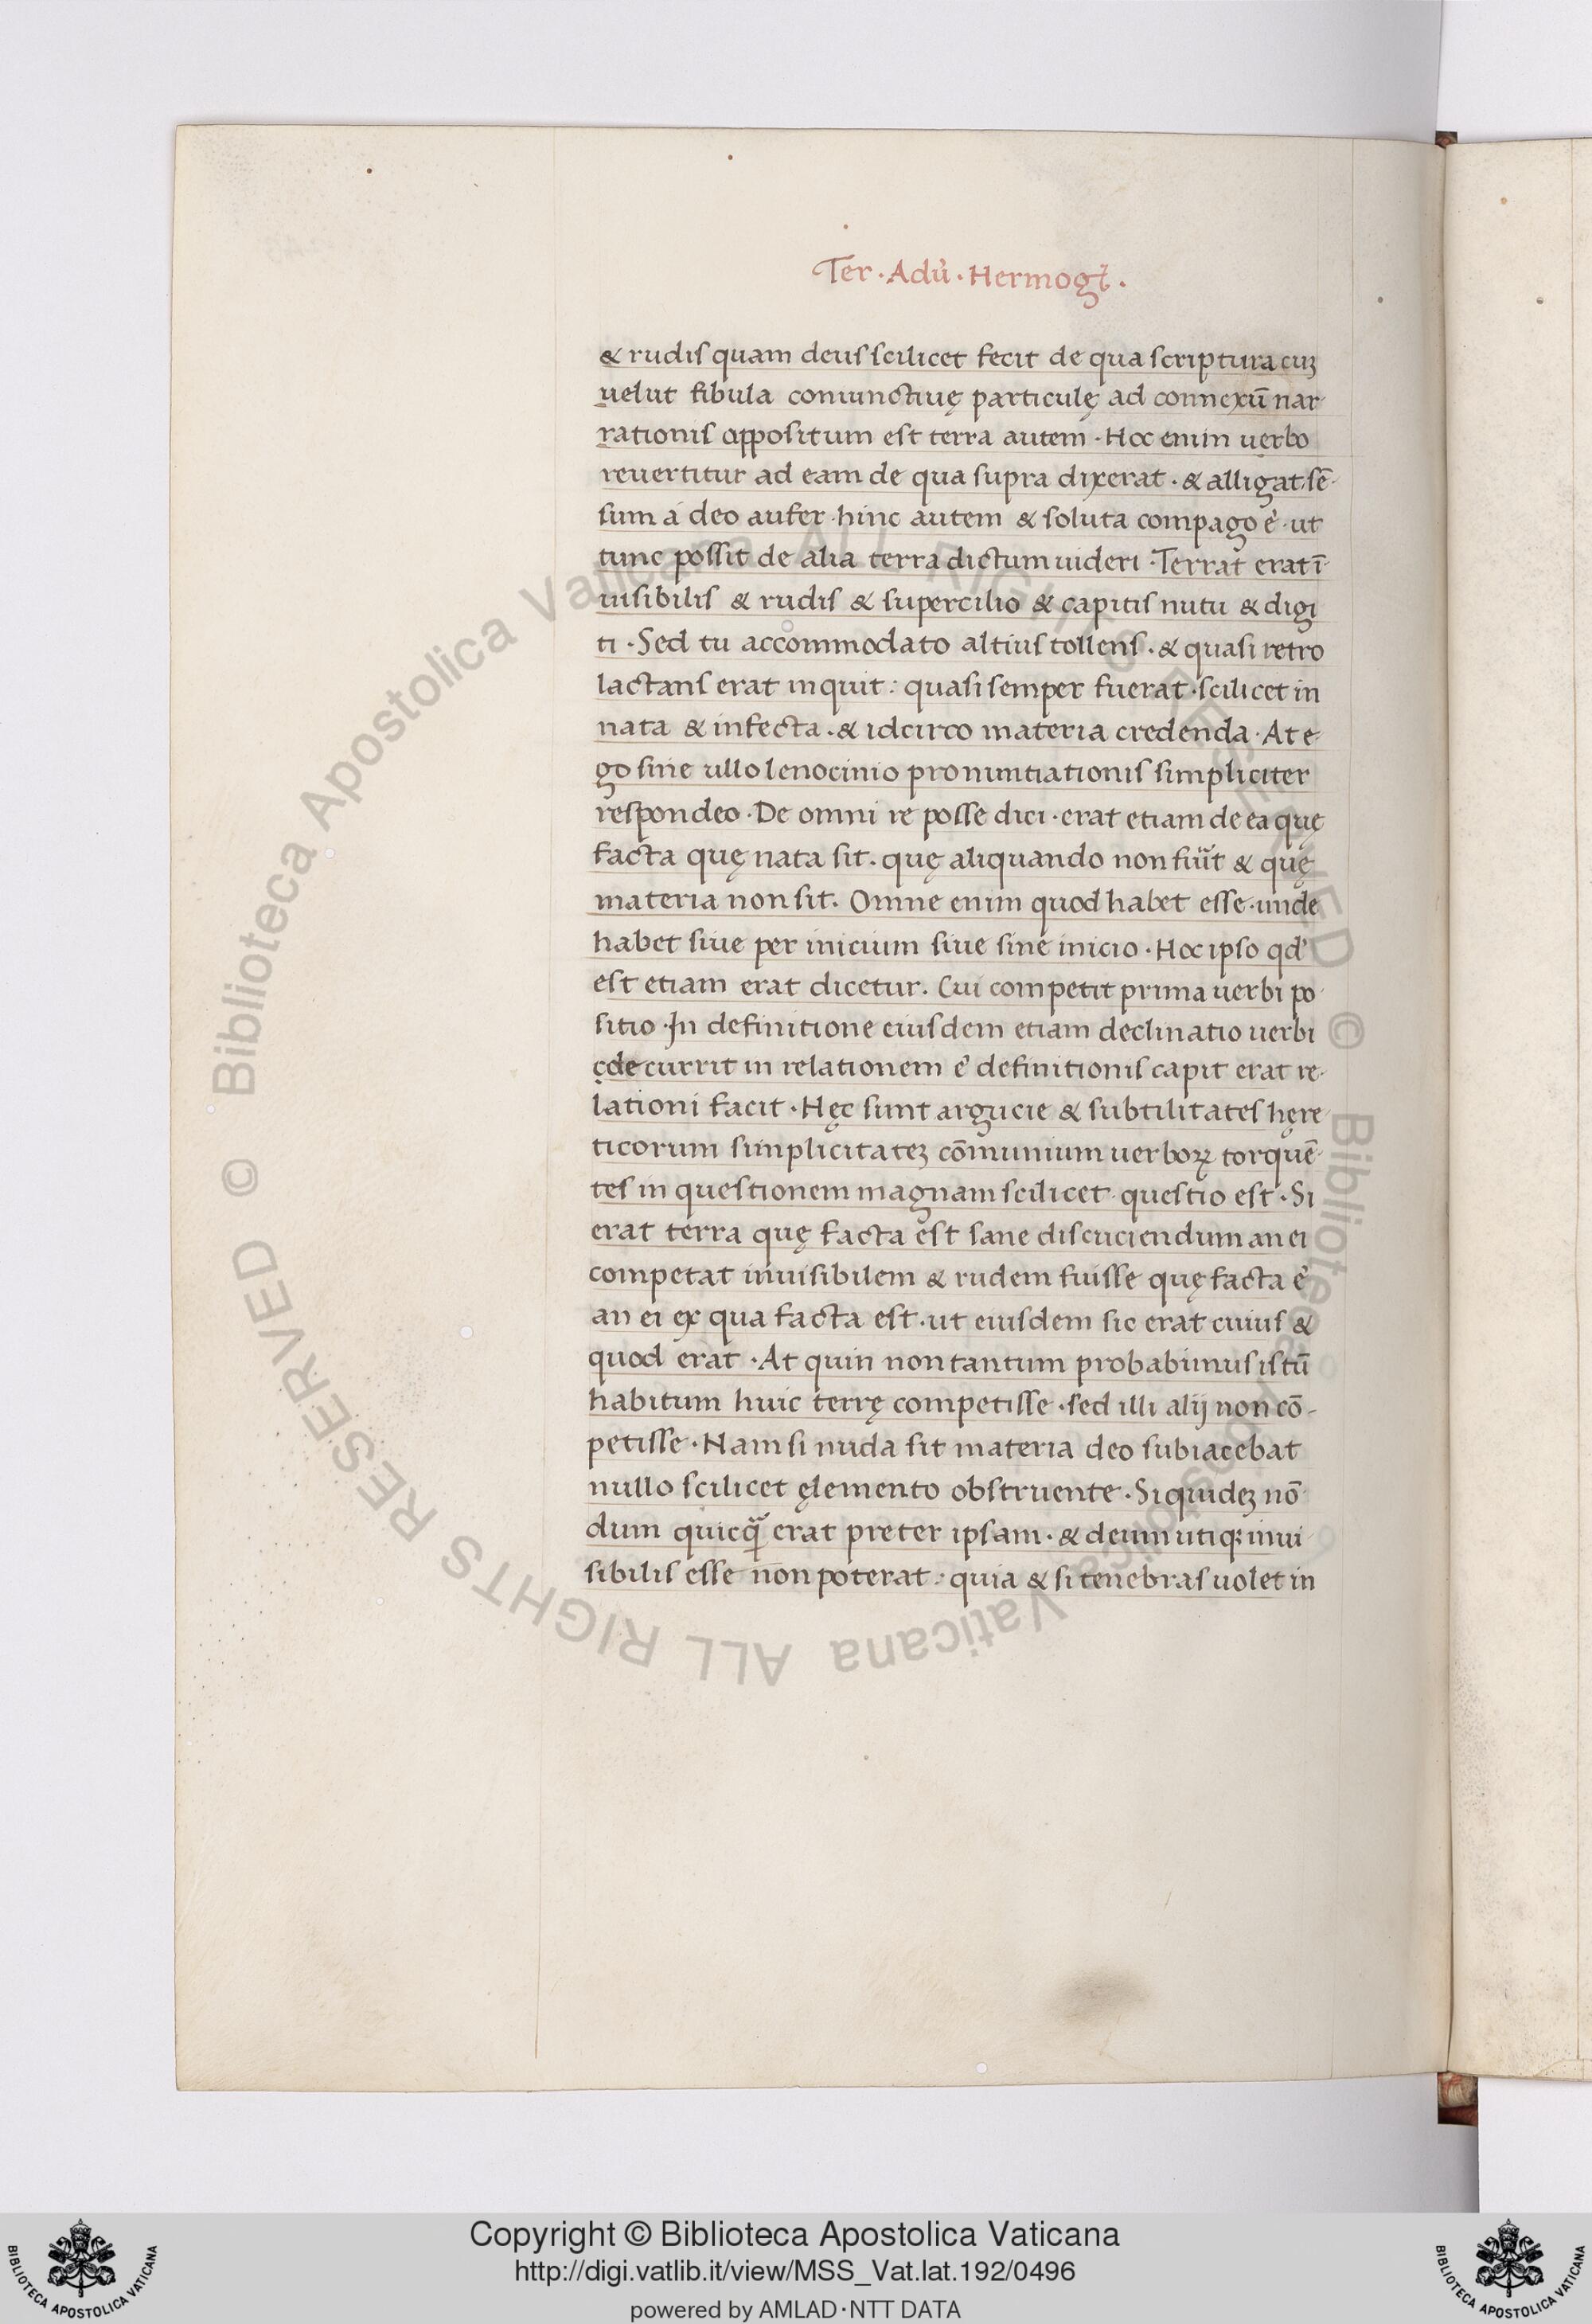 Ter · Adu̾ · Hermogē̾ .
& rudis quam deus scilicet fecit de qua scriptura cuꝫ
uelut fibula coniunctiuę particulę ad connexū nar
rationis appositum est terra autem · Hoc enim uerbo
reuertitur ad eam de qua supra dixerat · & alligat sē
sum á deo aufer hinc autem & soluta compago ē · ut
tunc possit de alia terra dictum uideri · Terrat erat ī
uisibilis & rudis & supercilio & capitis nutu & digi
ti · Sed tu accommodato altius tollens · & quasi retro
lactans erat inquit : quasi semper fuerat · scilicet in
nata & infecta · & idcirco materia credenda · At e
go sine ullo lenocinio pronuntiationis simpliciter
respondeo · De omni re posse dici · erat etiam de ea quę
facta quę nata sit · quę aliquando non fuit & quę
materia non sit . Omne enim quod habet esse · unde
habet siue per inicium siue sine inicio · Hoc ipso qd̾
est etiam erat dicetur . Cui competit prima uerbi po
sitio · In definitione eiusdem etiam declinatio uerbi
decurrit in relationem ē definitionis capit erat re
lationi facit · Hęc sunt argucie & subtilitates hęre
ticorum simplicitateꝫ cōmunium uerboꝝ torquē
tes in questionem magnam scilicet questio est · Si
erat terra quę facta est sane discuciendum an ei
competat inuisibilem & rudem fuisse quę facta ē
an ei ex qua facta est · ut eiusdem sic erat cuius &
quod erat · At quin non tantum probabimus istū
habitum huic terrę competisse · sed illi alij non cō-
petisse · Nam si nuda sit materia deo subiacebat
nullo scilicet ęlemento obstruente · Siquideꝫ nō
dum quicꝗ̃ erat preter ipsam · & deum utiqꝫ inui
sibilis esse non poterat : quia & si tenebras uolet in
© Biblioteca Apostolica Vaticana ALL RIGHTS RESERVED © Biblioteca Apostolica Vaticana ALL RIGHTS RESERVED
Copyright © Biblioteca Apostolica Vaticana
http://digi.vatlib.it/view/MSS_Vat.lat.192/0496
powered by AMLAD·NTT DATA
BIBLIOTECA APOSTOLICA VATICANA
BIBLIOTECA APOSTOLICA VATICANA